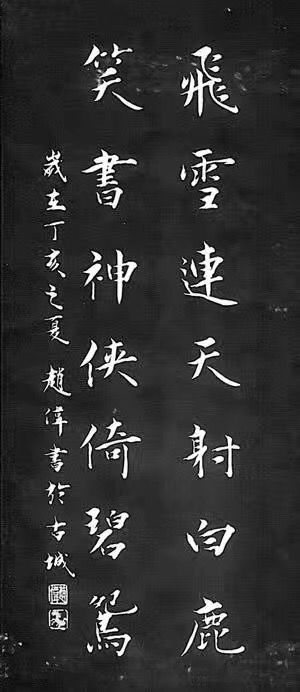 飛雪連天射白鹿
笑書神俠倚碧鴛
歲在丁亥之夏 趙偉書於古城